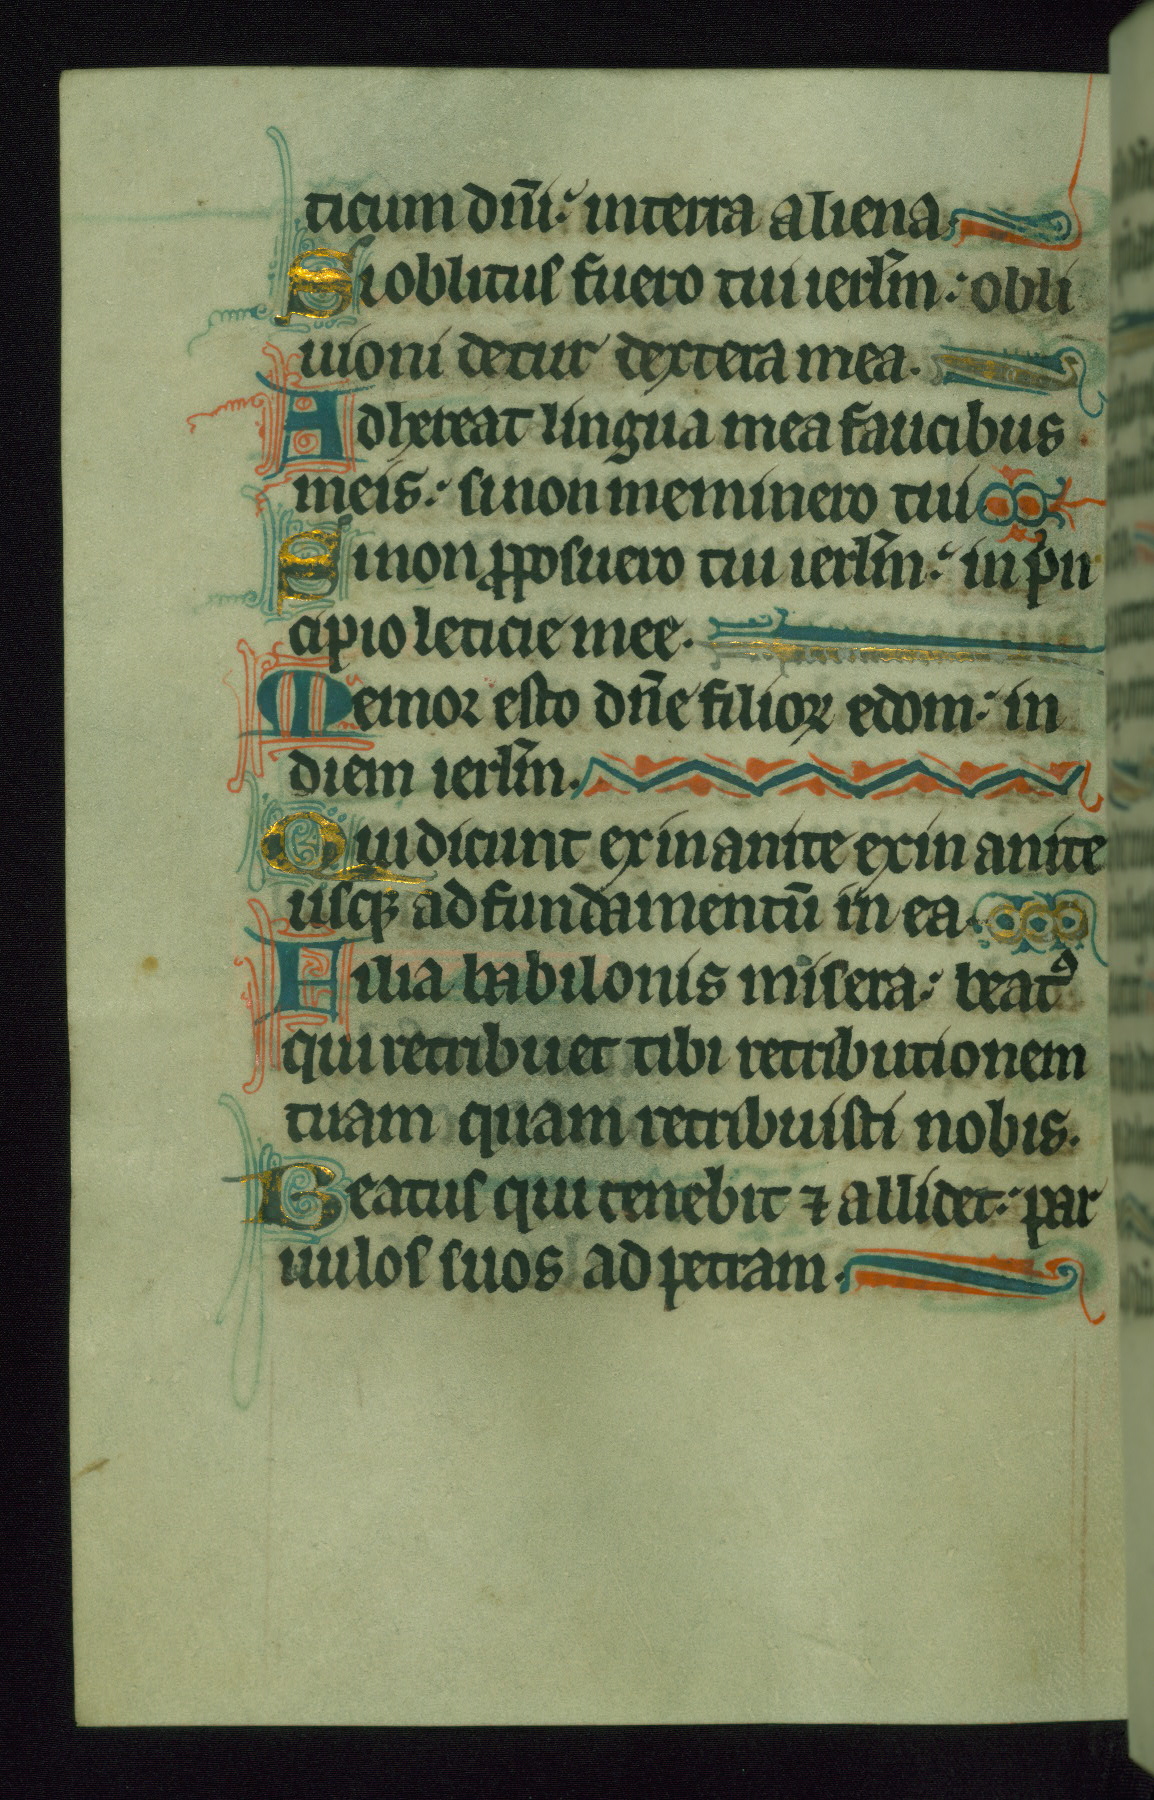 ticum dn̄i: in terra aliena
Si oblitus fuero tui ierl̄m: obli
uioni detur dextera mea.
Adhereat lingua mea faucibus
meis: si non meminero tui
Si non ꝓposuero tui ierl̄m: in pͥn
cipio leticie mee.
Memor esto dn̄e filioꝝ edom: in
diem ierl̄m.
Qui dicunt exinanite exinanite
usqꝫ ad fundamentū in ea.
Filia babilonis misera: beatꝰ
qui retribuet tibi retributionem
tuam quam retribuisti nobis.
Beatus qui tenebit ⁊ allidet: par
uulos suos ad petram.